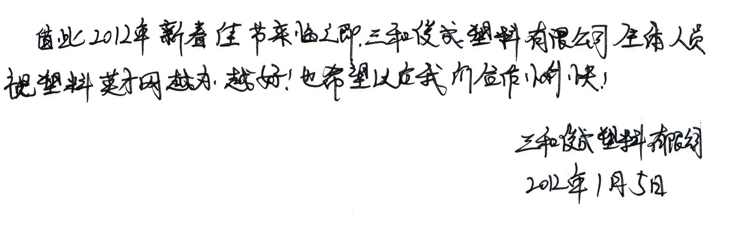 值此2012年新春佳节来临之即,三和俊成塑料有限公司全体人员
祝塑料英才网越办越好!也希望以后我们合作愉快!
三和俊成塑料有限公司
2012年1月5日